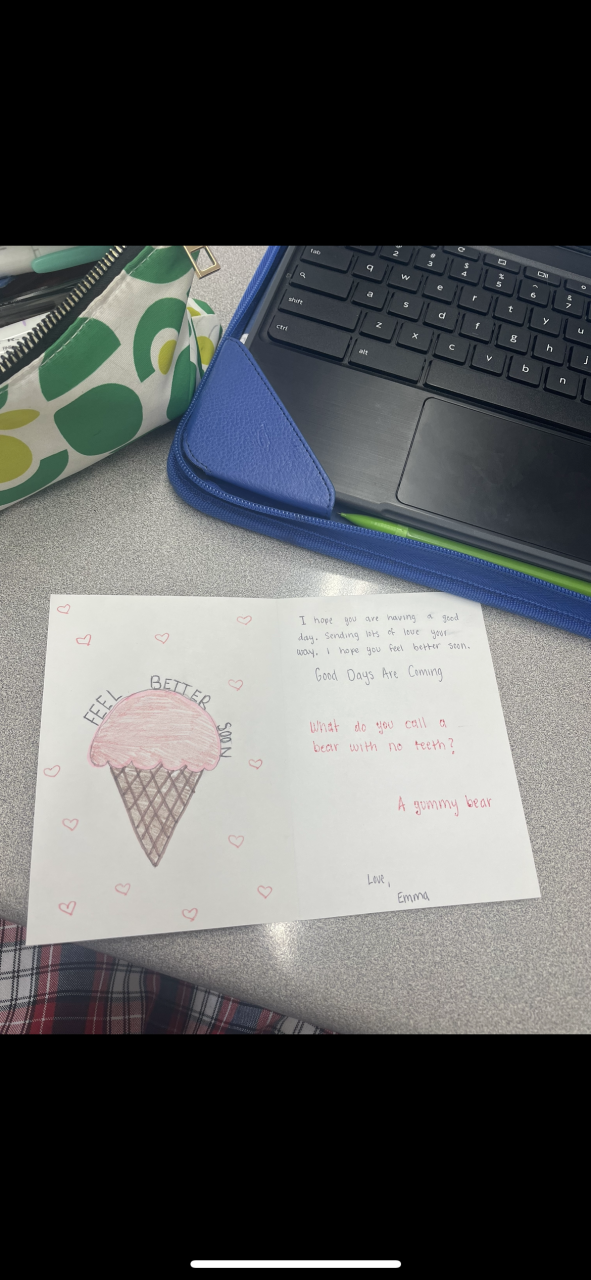 tab
2
#
3
$
4
%
5
^
6
&
7
q
w
e
r
t
y
u
a
s
d
f
g
h
j
shift
z
x
c
v
b
n
ctrl
alt
FEEL BETTER SOON
I hope you are having a good
day. Sending lots of love your
way. I hope you feel better soon.
Good Days Are Coming
What do you call a
bear with no teeth?
A gummy bear
Love,
Emma